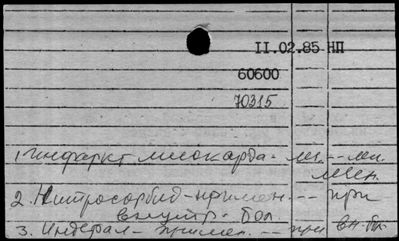 II.02.85 НП
60600
70315
1. Инфаркт миокарда - леч. -- мед.
лечен.
2. Нитросорбид - примен. --- при
внутр. бол.
3. Индерал - примен. --- при вн. бол.